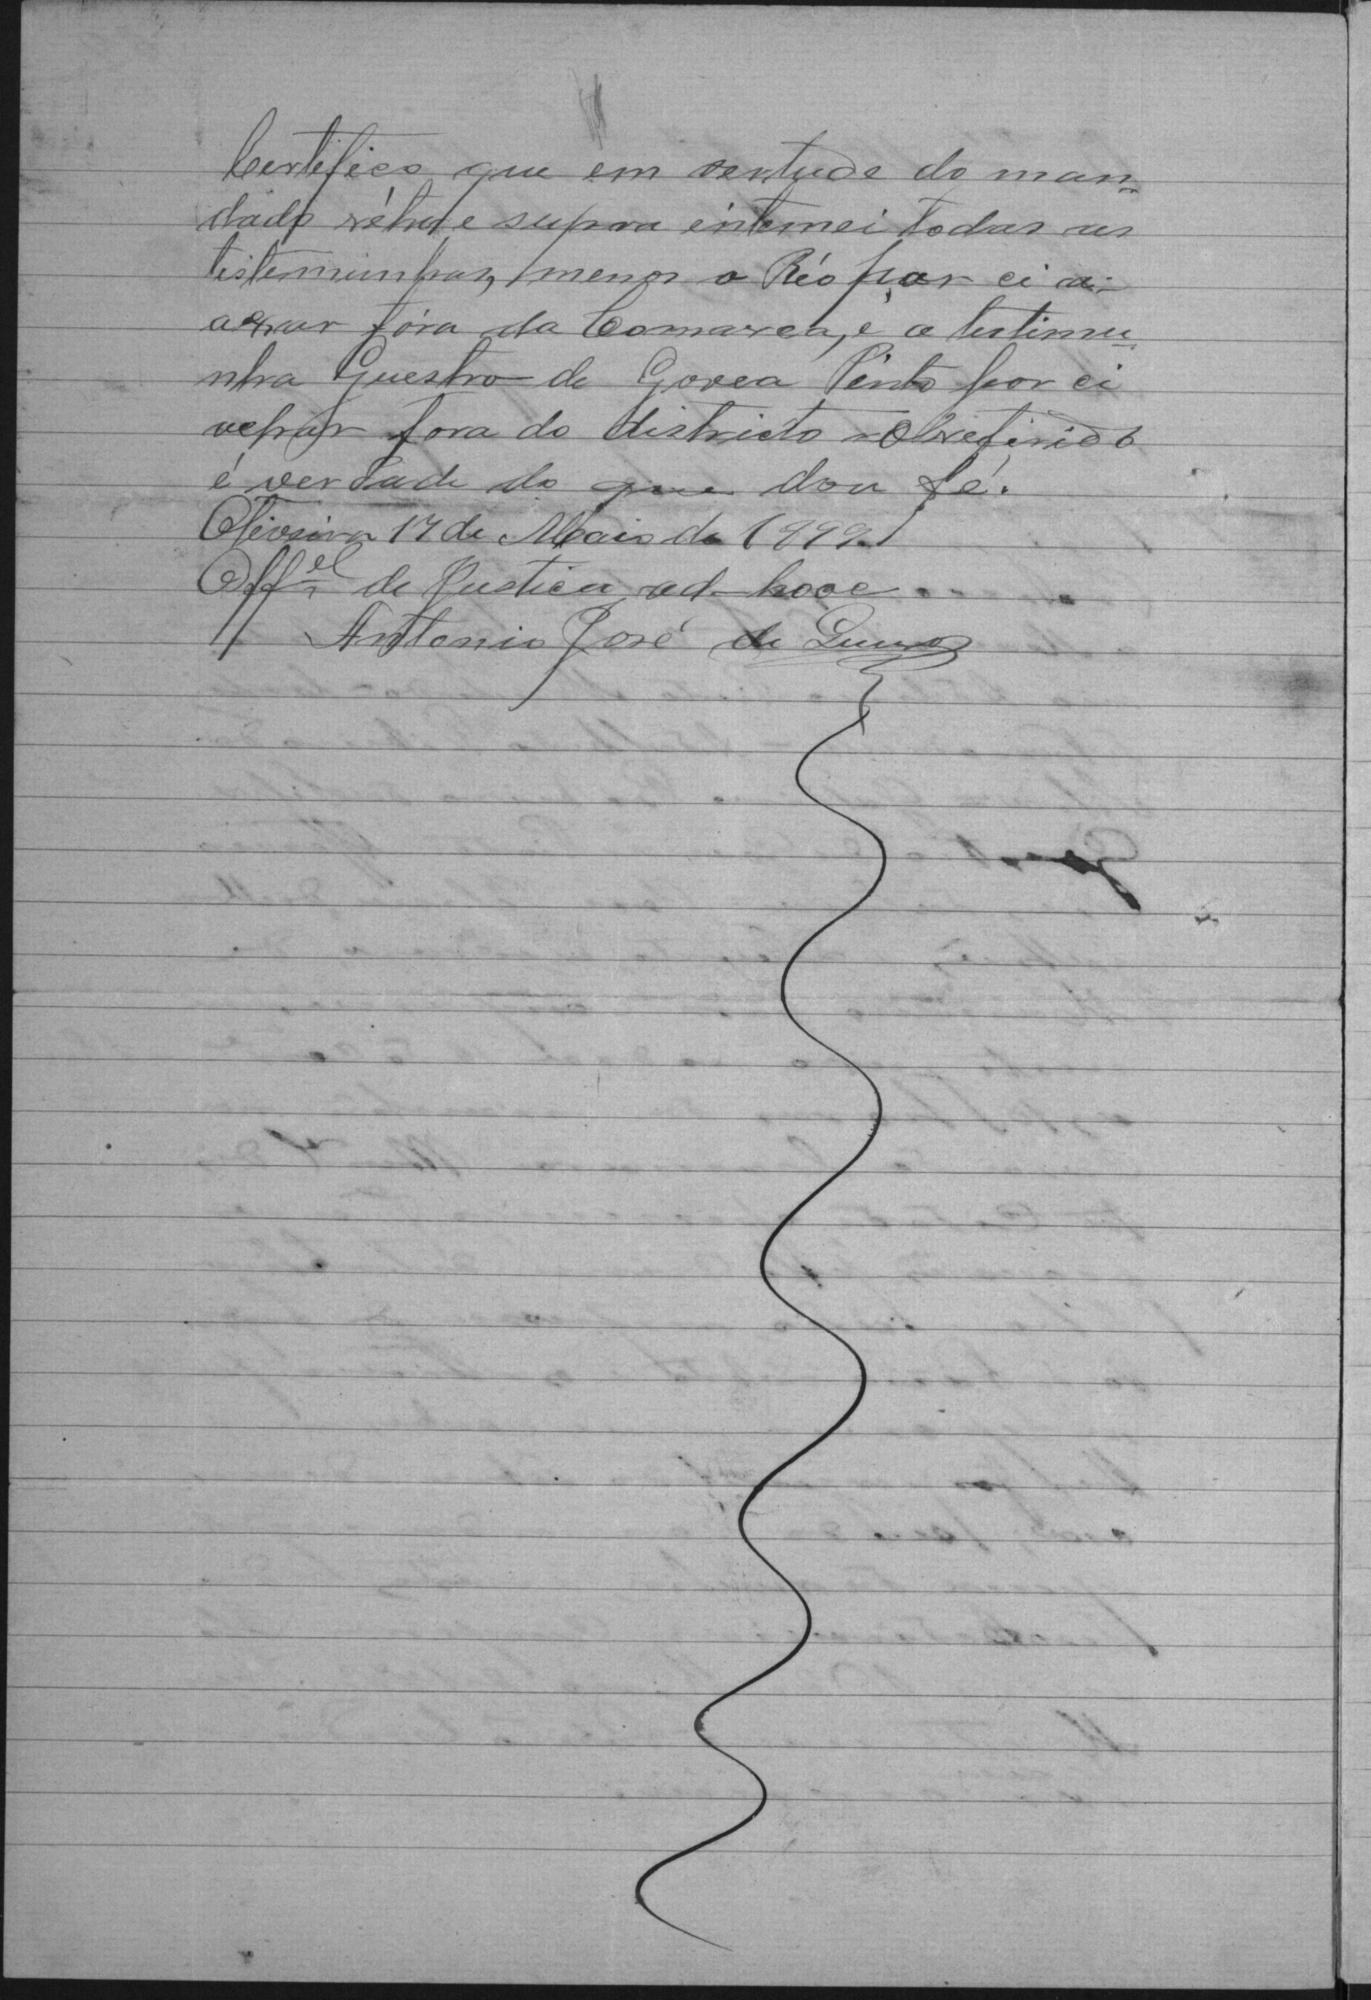 Certifico que em vertude do man-
dado rétro e supra intemei todas as
testemunhas, menos o Réo por ci a-
axar fóra da Comarca, e a testimu-
nha de Govea Pinto por ci
fora do districto o referido
é verdade do que dou fé.
Oliveira 17 de Maio de
Offel de Justica ad-hooc
Antonio José de